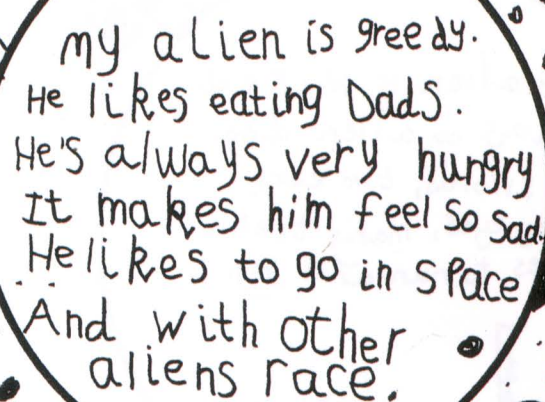 My alien is greedy.
He likes eating Dads.
He's always very hungry
It makes him feel so sad.
He likes to go in space
And with other
aliens race.